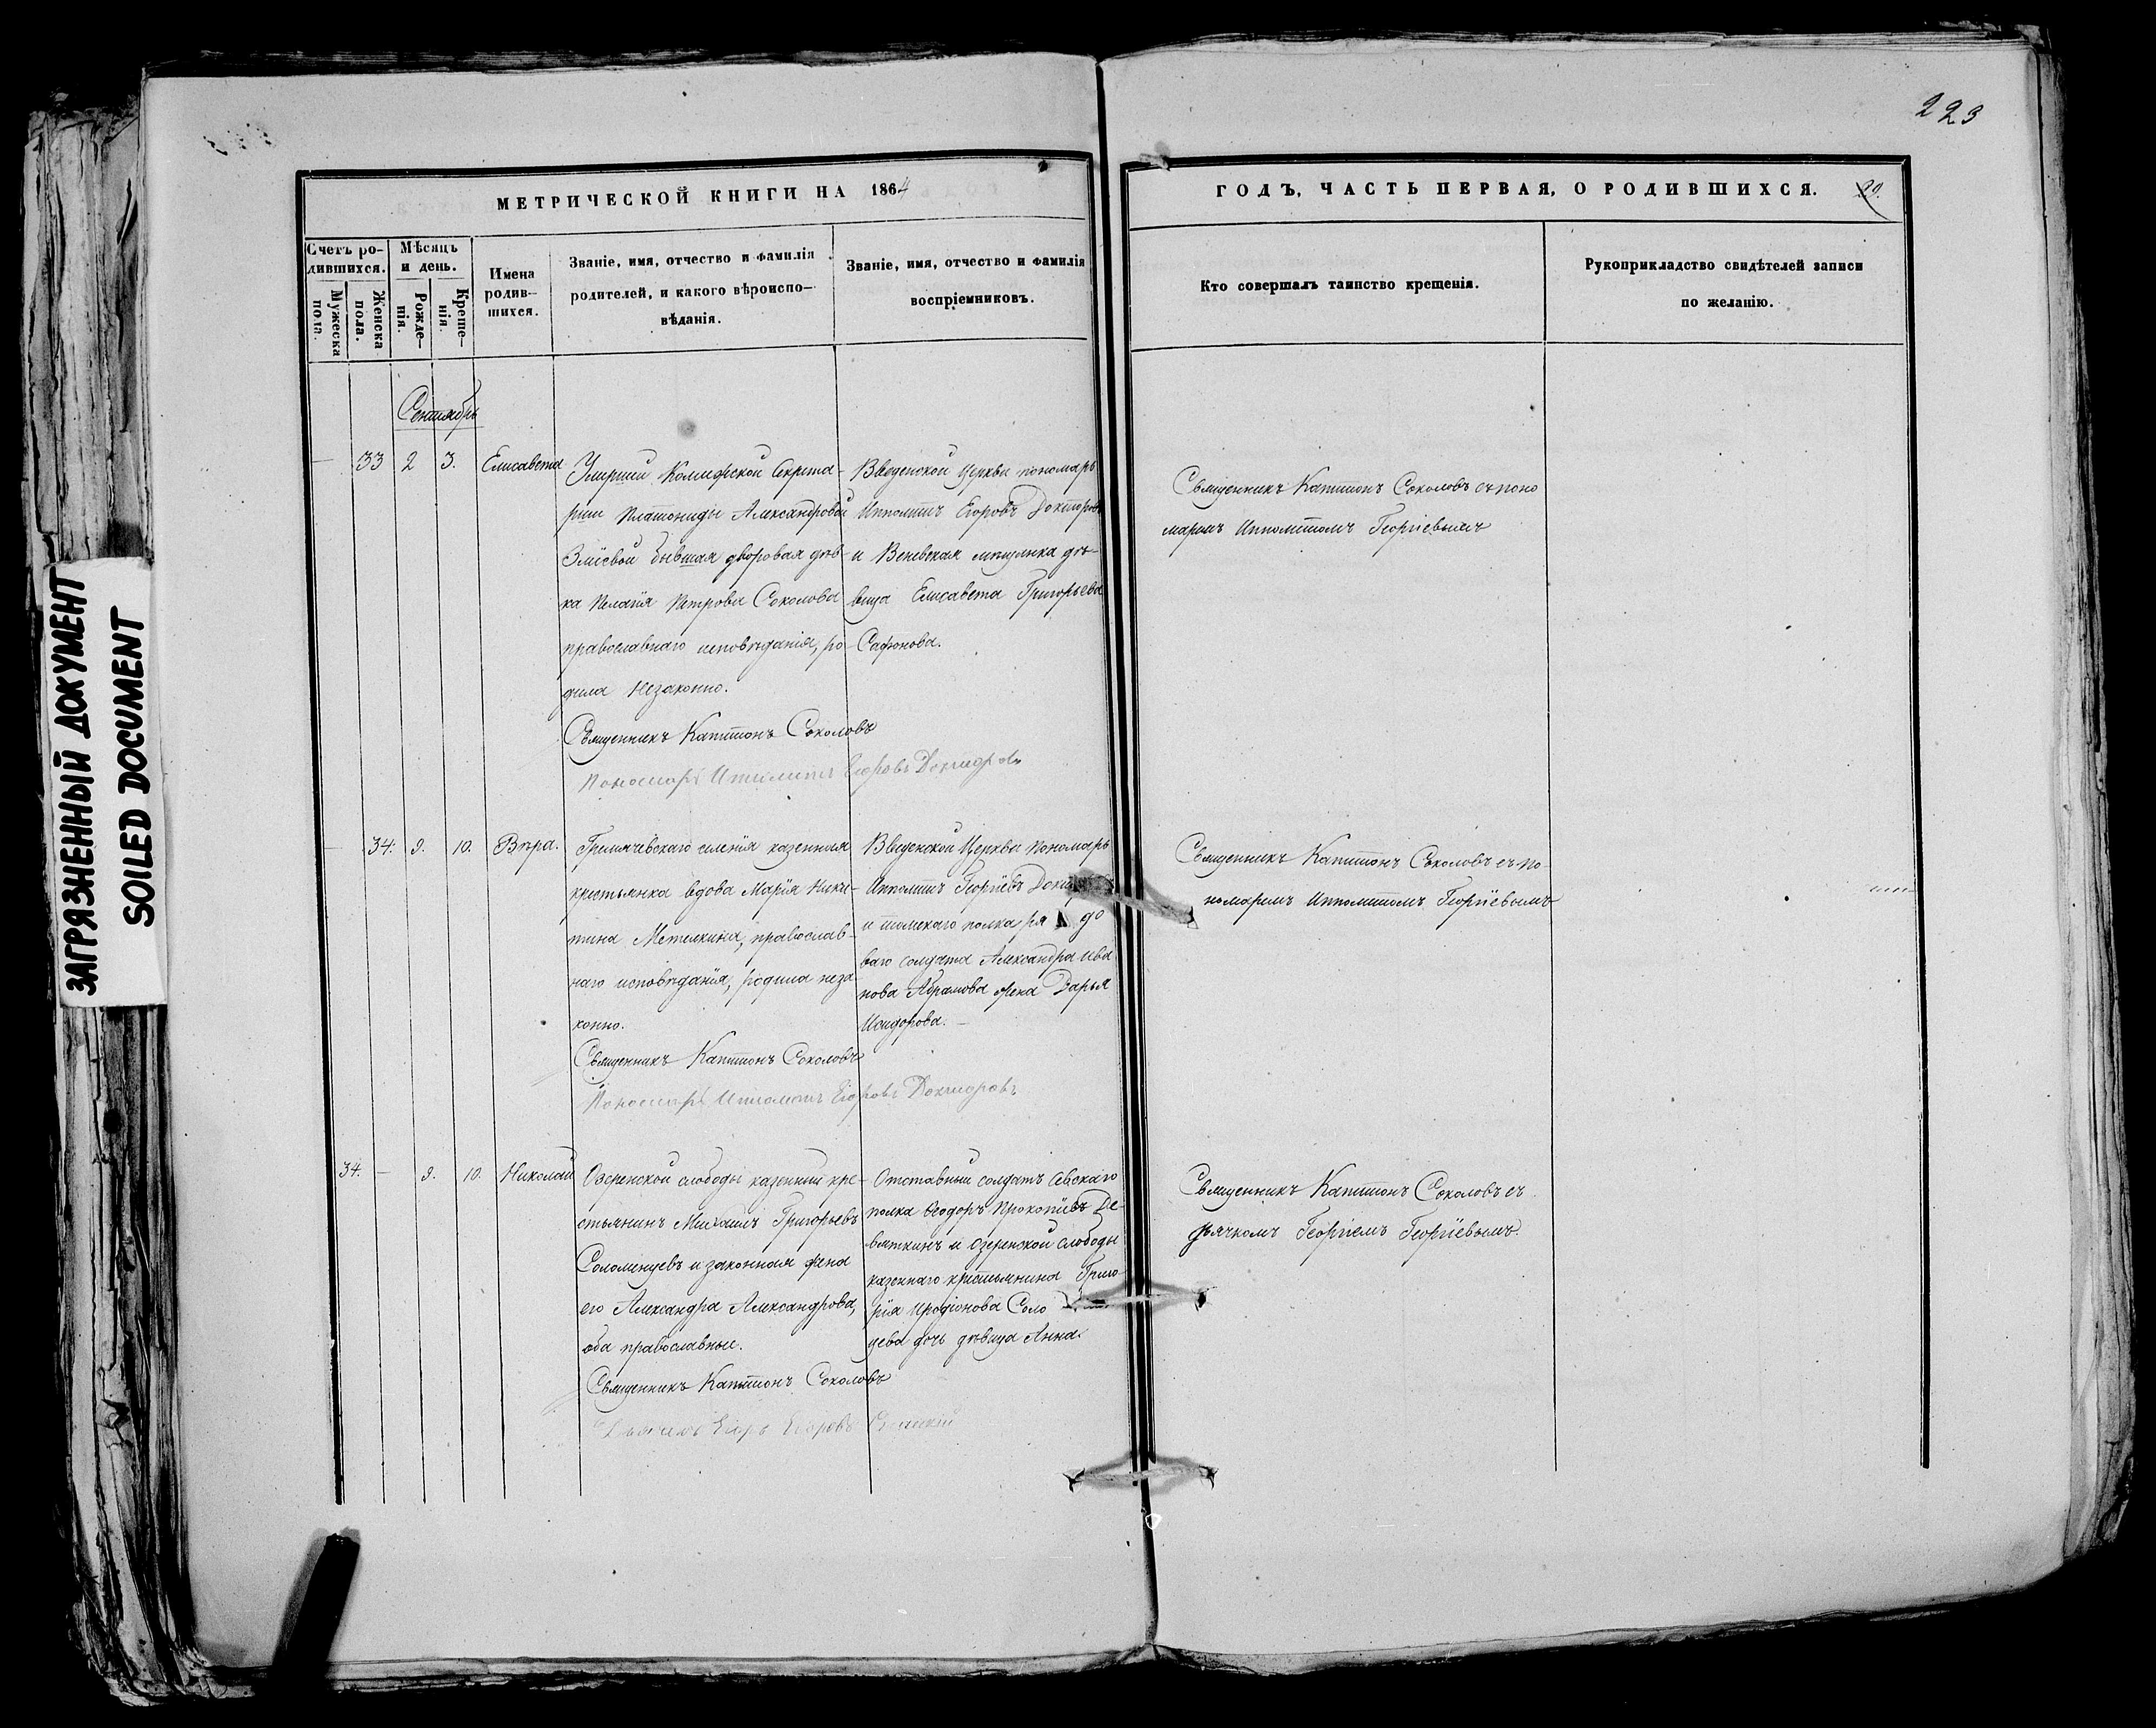 223
МЕТРИЧЕСКОЙ КНИГИ НА 1864
ГОДЪ, ЧАСТЬ ПЕРВАЯ, О РОДИВШИХСЯ. 20.
Счетъ ро-
дившихся.
Мужеска
пола.
Женска
пола.
Мѣсяцъ
и день.
Рожде-
нія.
Креще-
нія.
Имена
родив-
шихся.
Званіе, имя, отчество и фамилія
родителей, и какого вѣроиспо-
вѣданія.
Званіе, имя, отчество и фамилія
воспріемниковъ.
Кто совершалъ таинство крещенія.
Рукоприкладство свидѣтелей записи
по желанію.
Сентябрь
— 33 2 3. Елисавета
Умершей Секрета-
рши Платониды Александровой
бывшая дворовая дѣв-
ка Пелагія Петрова Соколова
православнаго исповѣданія, ро-
дила незаконно.
Священникъ Капитонъ Соколовъ
Пономарь Ипполитъ Егоровъ Докторовъ
Введенской Церкви пономарь
Ипполитъ Егоровъ Докторовъ
и Веневская мѣщанка дѣ-
вица Елисавета Григорьева
Сафонова.
Священникъ Капитонъ Соколовъ съ поно
маремъ Ипполитомъ Георгіевымъ
— 34. 9. 10. Вѣра.
Гремячевскаго селенія казенная
крестьянка вдова Марія Ники-
тина Метелкина, православ-
наго исповѣданія, родила неза
конно.
Священникъ Капитонъ Соколовъ
Пономарь Ипполитъ Егоровъ Докторовъ
Введенской Церкви Пономарь
Ипполитъ Георгіевъ
и томскаго полка ря до
ваго солдата Александра Ива
нова Абрамова жена Дарья
Исидорова. —
Священникъ Капитонъ Соколовъ съ по-
номаремъ Ипполитомъ Георгіевымъ
34. — 9. 10. Николай
Озеренской слободы казенный кре-
стьянинъ Михаилъ Григорьевъ
Соломенцевъ и законная жена
его Александра Александрова,
оба православные.
Священникъ Капитонъ Соколовъ
Егоръ Егоровъ
Отставный солдатъ Севскаго
полка Ѳеодоръ Прокопіевъ Де-
вяткинъ и Озеренской слободы
казеннаго крестьянина Григо-
рія Иродіонова Соло
цева дочь дѣвица Анна.
Священникъ Капитонъ Соколовъ съ
дьячкомъ Георгіемъ Георгіевымъ.
ЗАГРЯЗНЕННЫЙ ДОКУМЕНТ
SOILED DOCUMENT